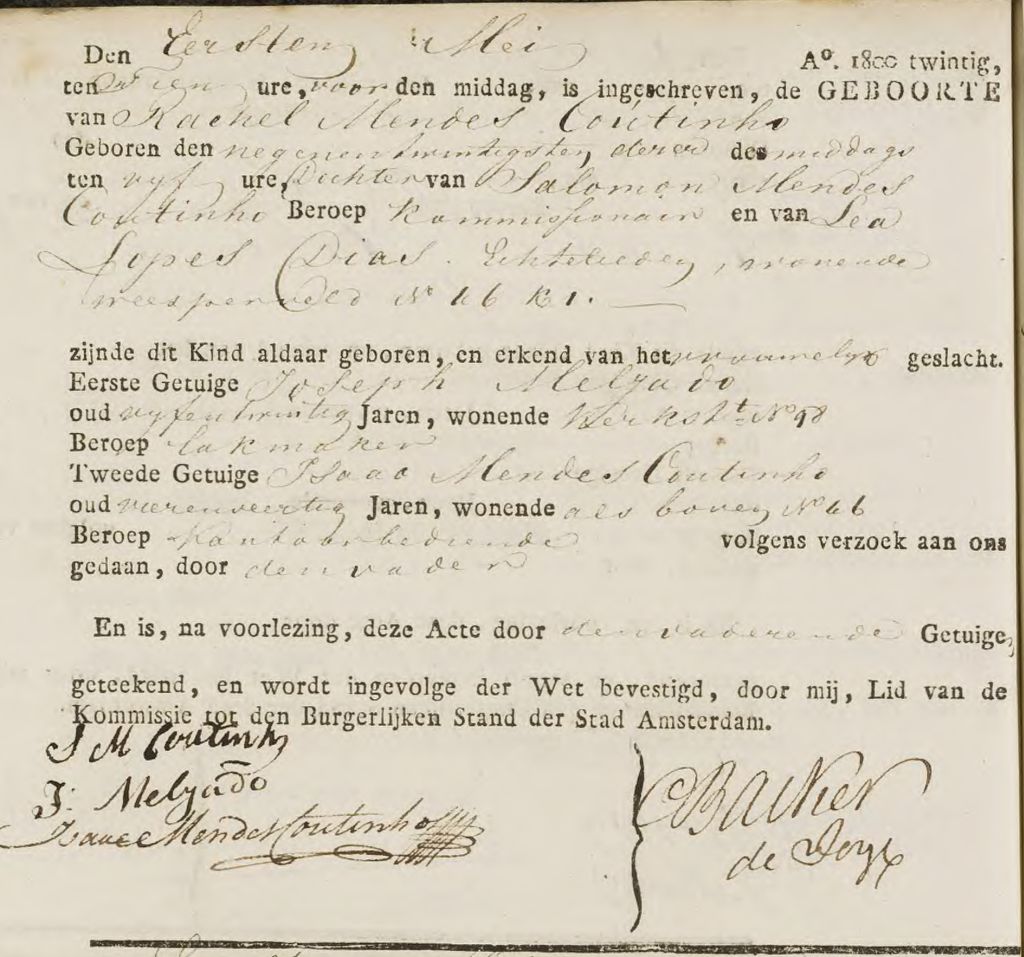 Den Eersten Mei Aº. 1800 twintig,
ten Tien ure, voor den middag, is ingeschreven, de GEBOORTE
van Rachel Mendes Coutinho
Geboren den negenentwintigsten dezer des middags
ten vyf ure, Dochter van Salomon Mendes
Coutinho Beroep Kommissionair en van Lea
Lopes Dias. Echtelieden, wonende
weesperveld Nº 46 K 1.
zijnde dit Kind aldaar geboren, en erkend van het vrouwelyk geslacht.
Eerste Getuige Joseph Melgado
oud vyfentwintig Jaren, wonende Kerkstt Nº 98
Beroep lakmaker
Tweede Getuige Isaac Mendes Coutinho
oud vierenveertig Jaren, wonende als boven Nº 46
Beroep Kantoorbediende volgens verzoek aan ons
gedaan, door den vader
En is, na voorlezing, deze Acte door den vader en de Getuige,
geteekend, en wordt ingevolge der Wet bevestigd, door mij, Lid van de
Kommissie tot den Burgerlijken Stand der Stad Amsterdam.
S M Coutinho
J: Melgado
Isaac Mendes Coutinho
CBacker